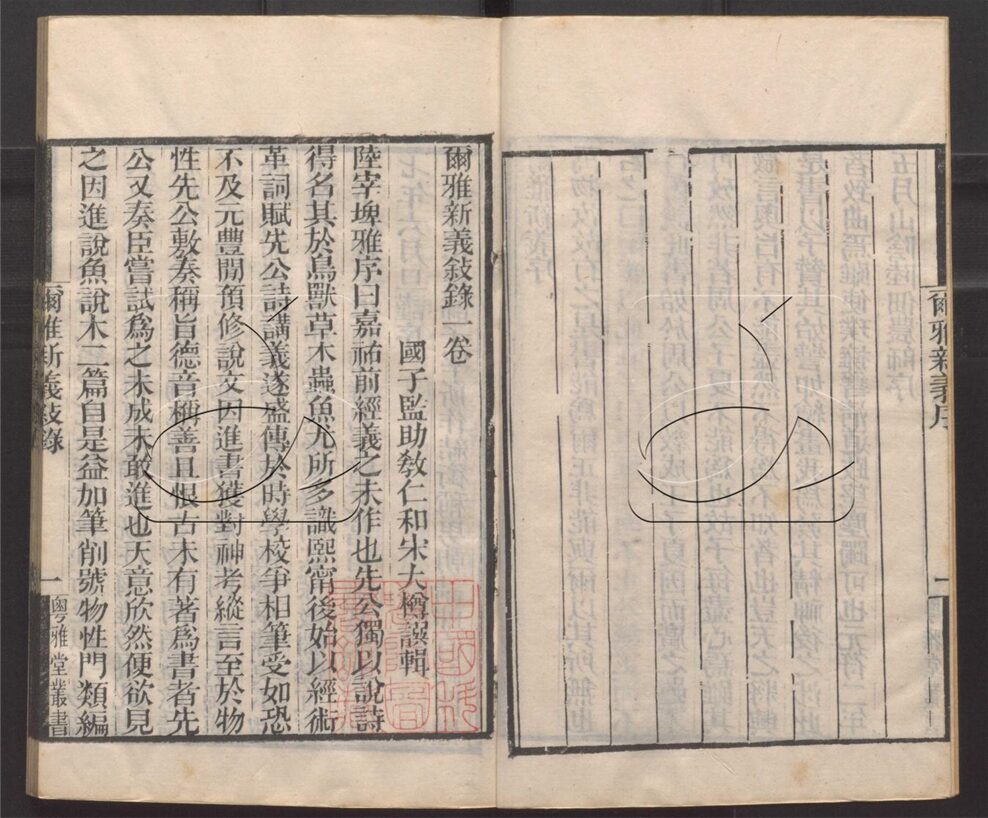 爾雅新義序
一
爾雅新義敍錄一卷
國子監助敎仁和宋大樽譔輯
陸宰埤雅序曰嘉祐前經義之未作也先公獨以說詩
得名其於鳥獸草木蟲魚尤所多識熙甯後始以經術
革詞賦先公詩講義遂盛傳於時學校爭相筆受如恐
不及元豐閒預修說文因進書獲對神考縱言至於物
性先公敷奏稱旨德音稱善且恨古未有著爲書者先
公又奏臣嘗試爲之未成未敢進也天意欣然便欲見
之因進說魚說木二篇自是益加筆削號物性門類編
爾雅新義敍錄
一
粵雅堂叢書